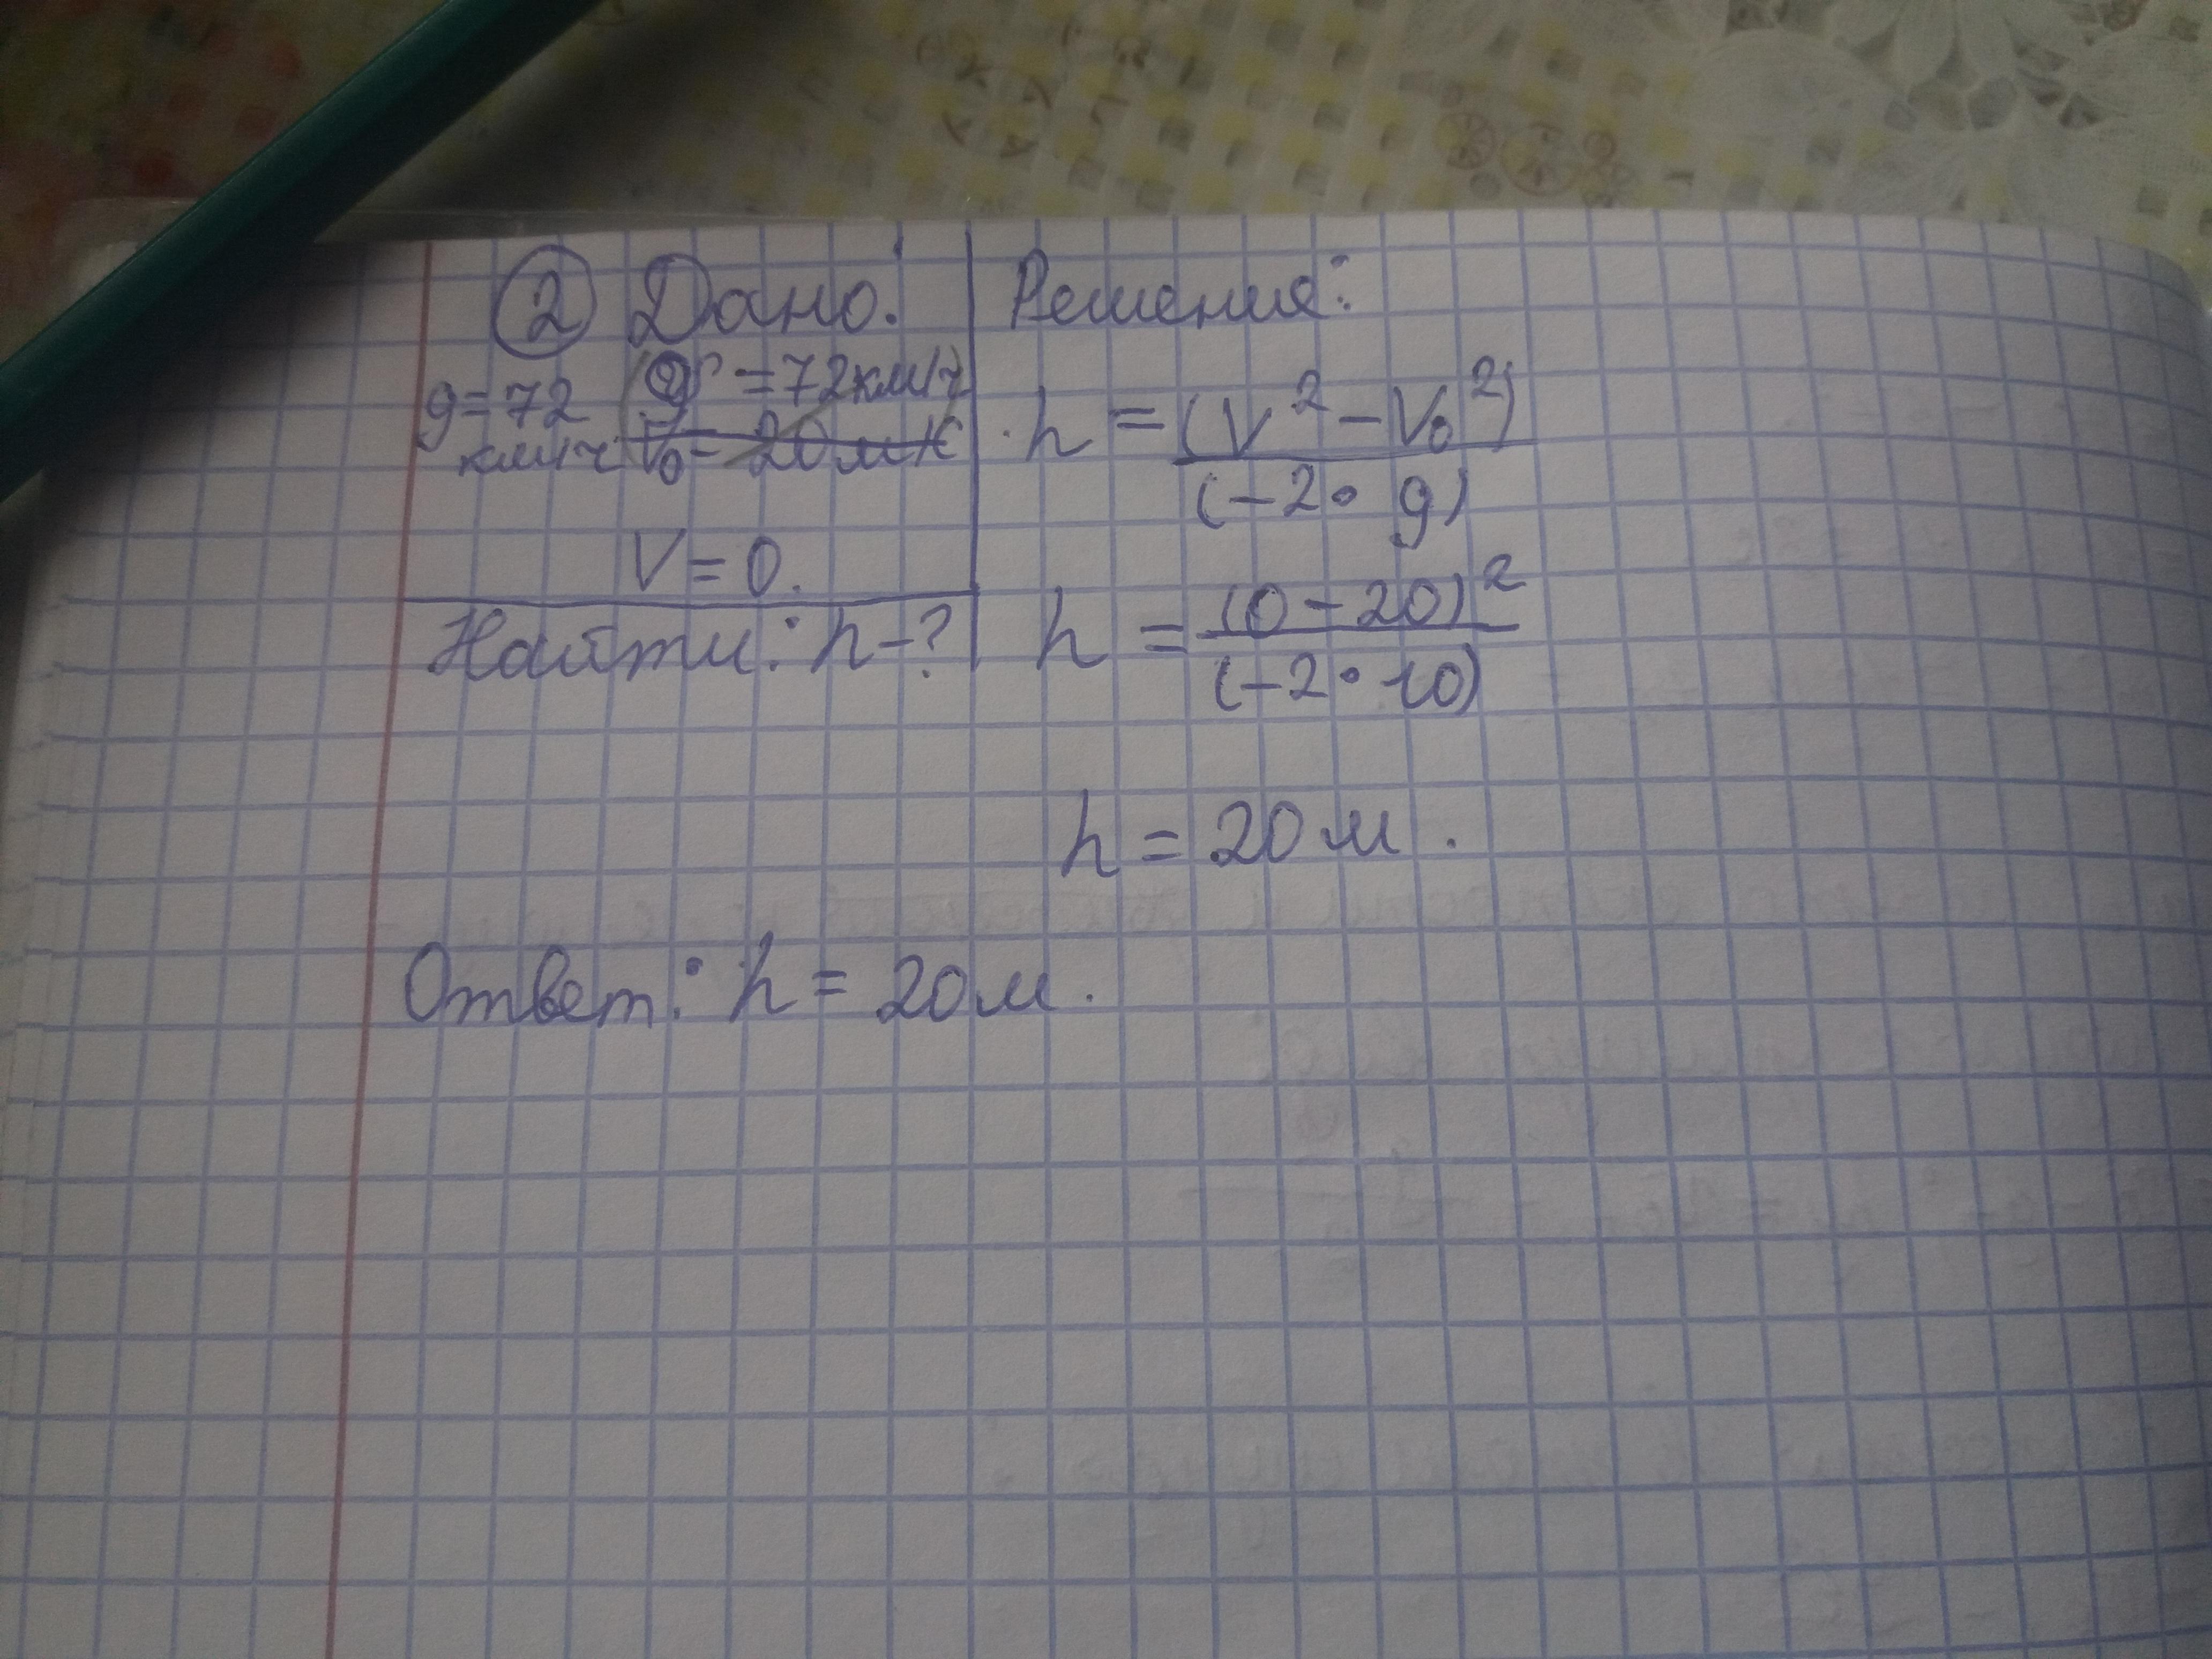 ② Дано:
g = 72 км/ч
= 72 км/ч
V₀ = 20 м/с
V = 0.
Найти: h - ?
Решения:
h = (V² - V₀²) / (-2 • g)
h = (0 - 20)² / (-2 • 10)
h = 20 м.
Ответ: h = 20 м.